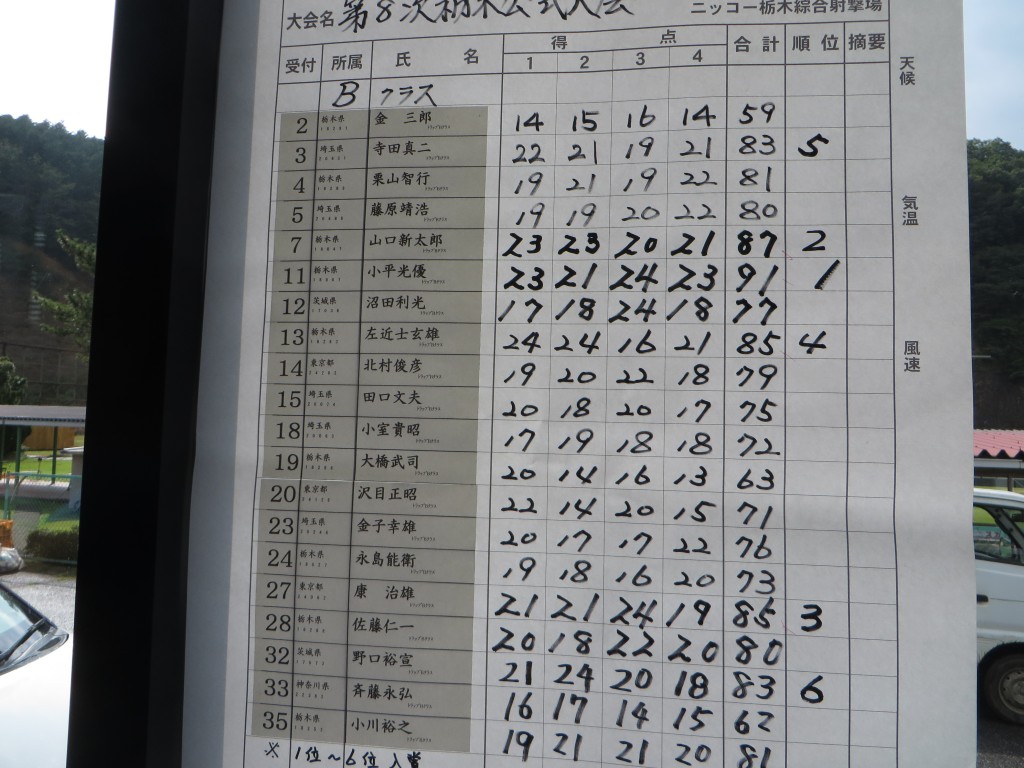 大会名 第8次栃木公式大会 ニッコー栃木綜合射撃場
受付 所属 氏名 得点 1 2 3 4 合計 順位 摘要
天候
気温
風速
B クラス
2 栃木県 金 三郎 14 15 16 14 59
3 埼玉県 寺田真二 22 21 19 21 83 5
4 栃木県 栗山智行 19 21 19 22 81
5 埼玉県 藤原靖浩 19 19 20 22 80
7 栃木県 山口新太郎 23 23 20 21 87 2
11 栃木県 小平光優 23 21 24 23 91 1
12 茨城県 沼田利光 17 18 24 18 77
13 栃木県 左近士玄雄 24 24 16 21 85 4
14 東京都 北村俊彦 19 20 22 18 79
15 埼玉県 田口文夫 20 18 20 17 75
18 埼玉県 小室貴昭 17 19 18 18 72
19 栃木県 大橋武司 20 14 16 13 63
20 東京都 沢目正昭 22 14 20 15 71
23 埼玉県 金子幸雄 20 17 17 22 76
24 栃木県 永島能衛 19 18 16 20 73
27 東京都 康 治雄 21 21 24 19 85 3
28 栃木県 佐藤仁一 20 18 22 20 80
32 茨城県 野口裕宣 21 24 20 18 83 6
33 神奈川県 斉藤永弘 16 17 14 15 62
35 栃木県 小川裕之 19 21 21 20 81
※ 1位～6位 入賞